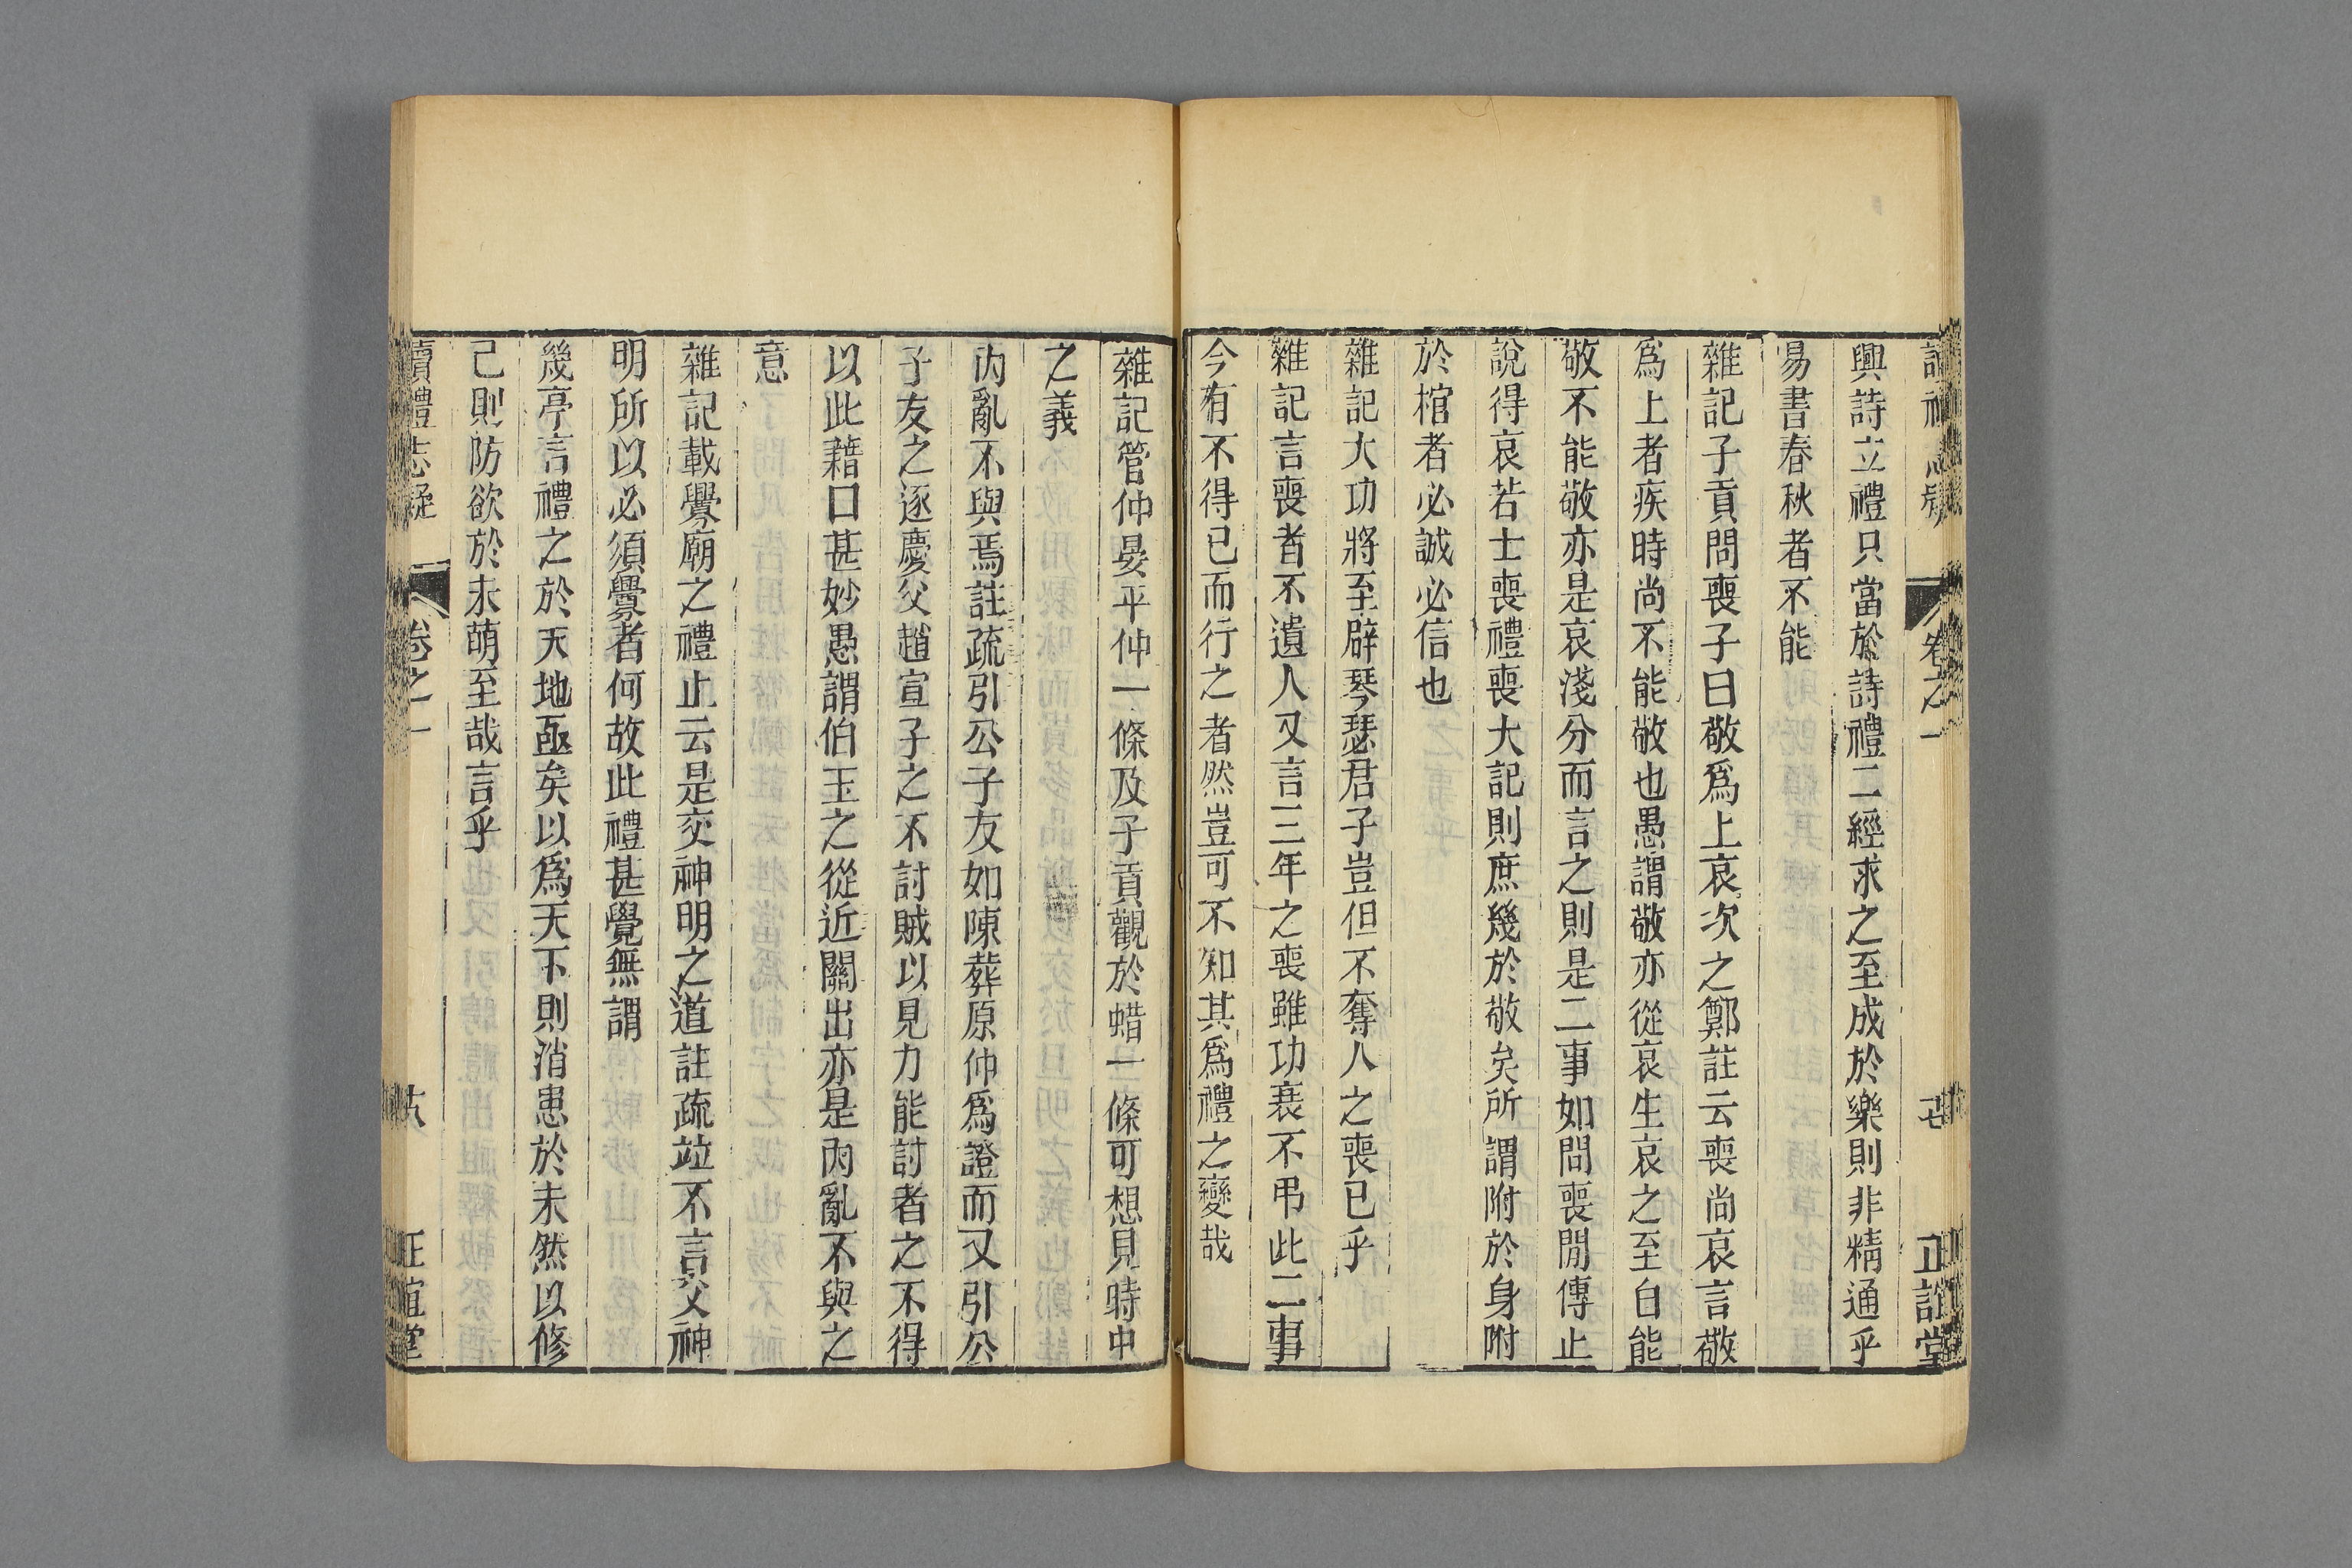 卷之一
正誼堂
興詩立禮只當於詩禮二經求之至成於樂則非精通乎
易書春秋者不能
雜記子貢問喪子曰敬爲上哀次之鄭註云喪尚哀言敬
爲上者疾時尚不能敬也愚謂敬亦從哀生哀之至自能
敬不能敬亦是哀淺分而言之則是二事如問喪閒傳止
說得哀若士喪禮喪大記則庶幾於敬矣所謂附於身附
於棺者必誠必信也
雜記大功將至辟琴瑟君子豈但不奪人之喪已乎
雜記言喪者不遺人又言三年之喪雖功衰不弔此二事
今有不得已而行之者然豈可不知其爲禮之變哉
雜記管仲晏平仲一條及子貢觀於蜡一條可想見時中
之義
內亂不與焉註疏引公子友如陳葬原仲爲證而又引公
子友之逐慶父趙宣子之不討賊以見力能討者之不得
以此藉口甚妙愚謂伯玉之從近關出亦是內亂不與之
意
雜記載釁廟之禮止云是交神明之道註疏竝不言交神
明所以必須釁者何故此禮甚覺無謂
幾亭言禮之於天地亟矣以爲天下則消患於未然以修
己則防欲於未萌至哉言乎
讀禮志疑
卷之一
六
正誼堂